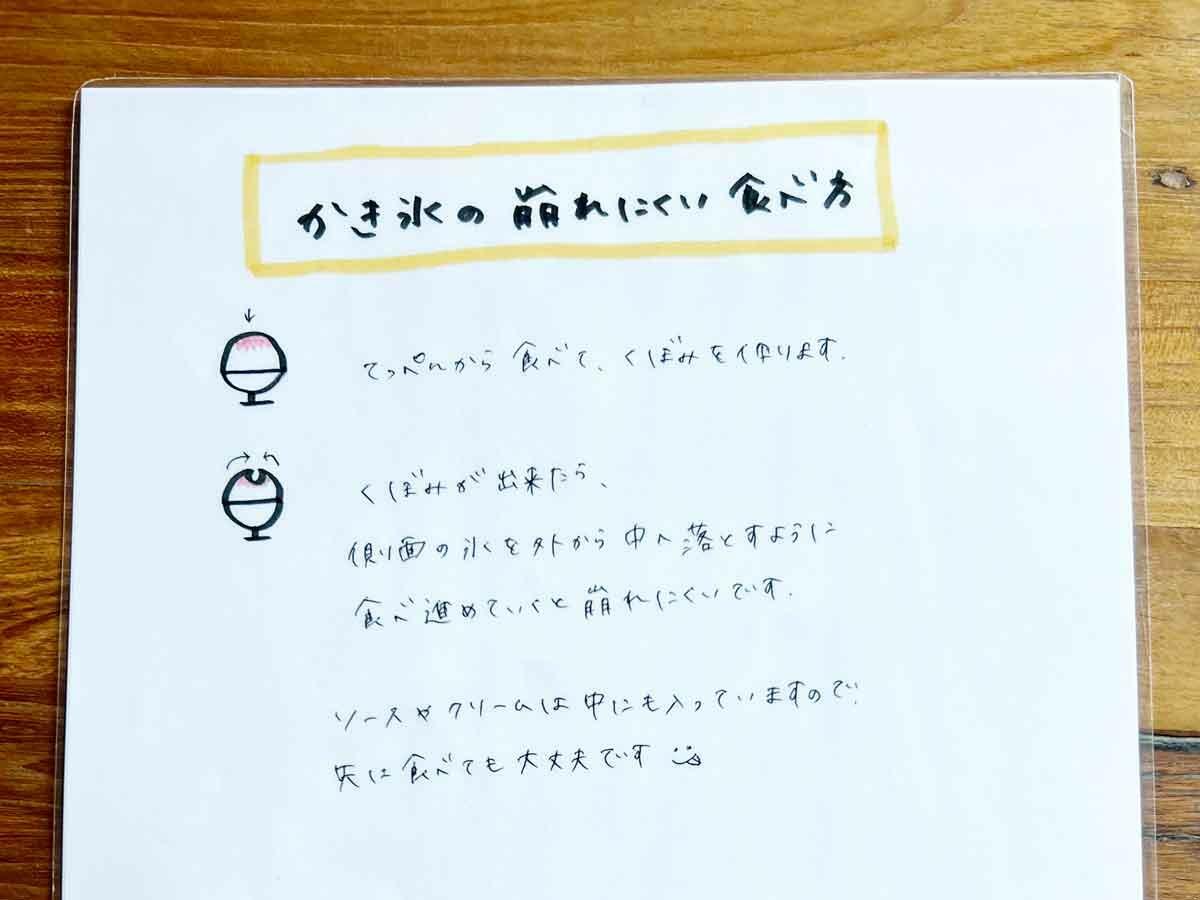 かき氷の崩れにくい食べ方
てっぺんから食べて、くぼみを作ります.
くぼみが出来たら、
側面の氷を外から中へ落とすように
食べ進めていくと崩れにくいです.
ソースやクリームは中にも入っていますので、
先に食べても大丈夫です